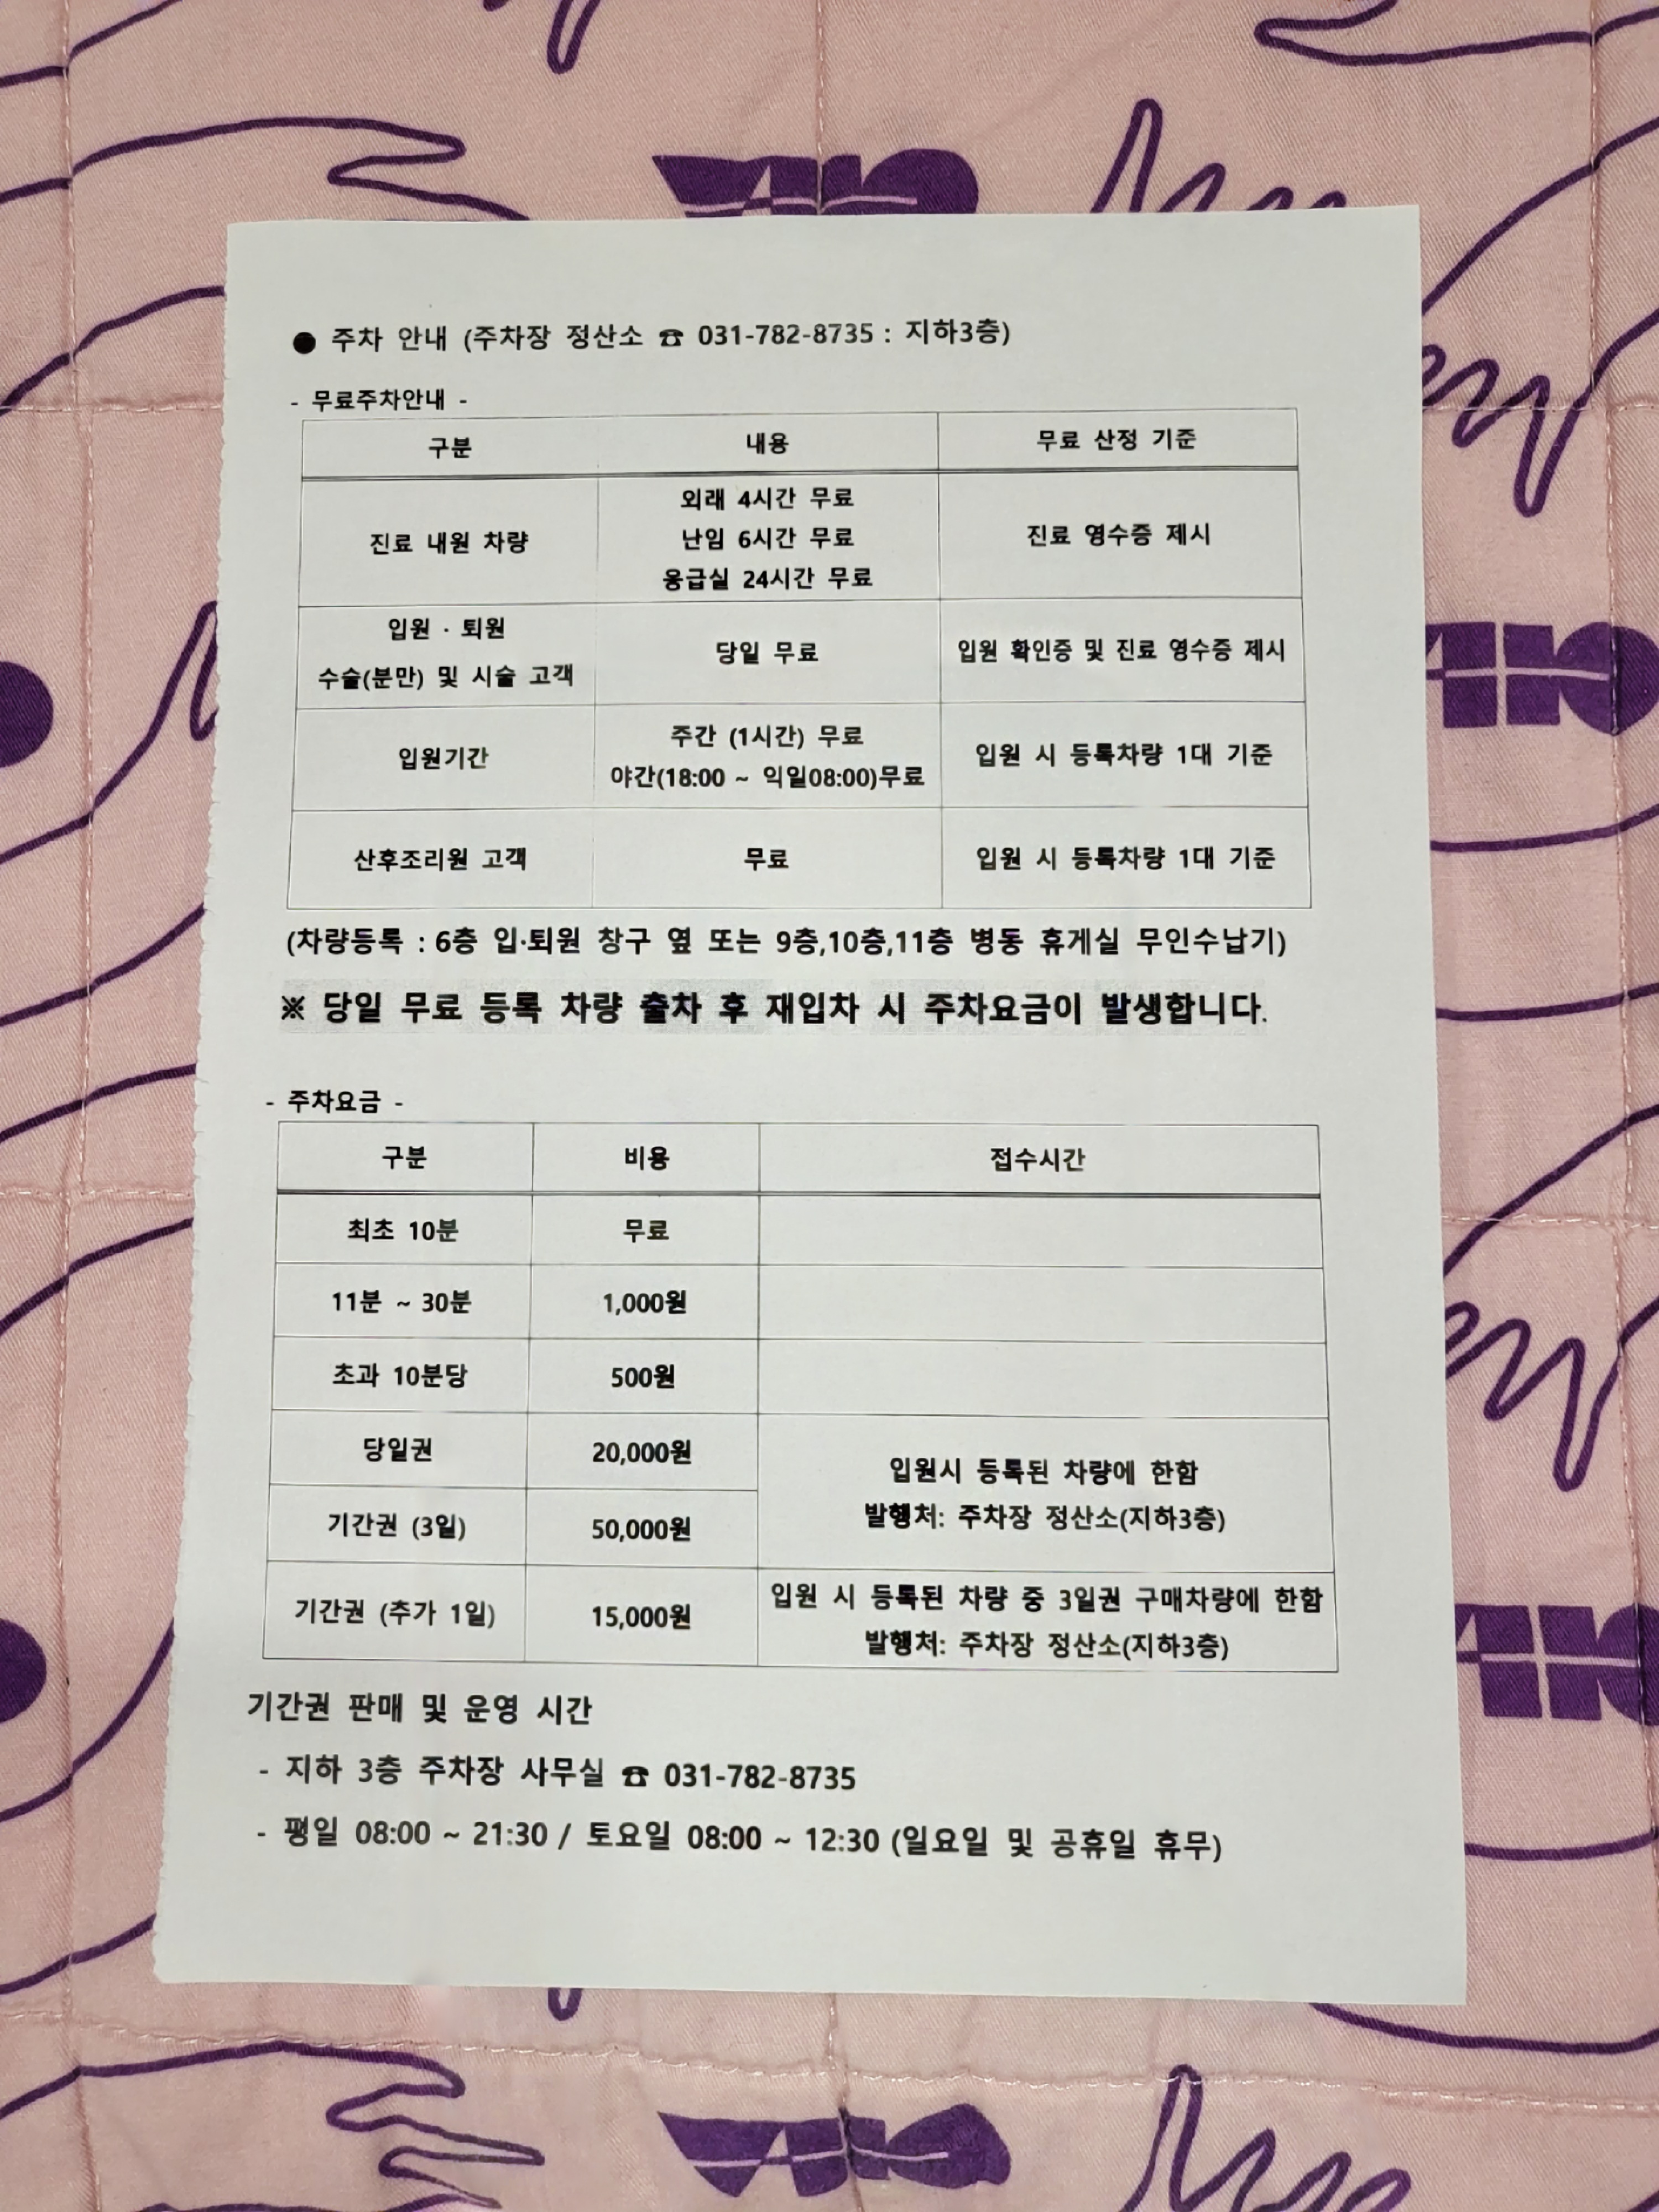 ● 주차 안내 (주차장 정산소 ☎ 031-782-8735 : 지하3층)
- 무료주차안내 -
구분 내용 무료 산정 기준
진료 내원 차량
외래 4시간 무료
난임 6시간 무료
응급실 24시간 무료
진료 영수증 제시
입원 · 퇴원
수술(분만) 및 시술 고객
당일 무료
입원 확인증 및 진료 영수증 제시
입원기간
주간 (1시간) 무료
야간(18:00 ~ 익일08:00)무료
입원 시 등록차량 1대 기준
산후조리원 고객 무료 입원 시 등록차량 1대 기준
(차량등록 : 6층 입·퇴원 창구 옆 또는 9층,10층,11층 병동 휴게실 무인수납기)
※ 당일 무료 등록 차량 출차 후 재입차 시 주차요금이 발생합니다.
- 주차요금 -
구분 비용 접수시간
최초 10분 무료
11분 ~ 30분 1,000원
초과 10분당 500원
당일권 20,000원
기간권 (3일) 50,000원
입원시 등록된 차량에 한함
발행처: 주차장 정산소(지하3층)
기간권 (추가 1일) 15,000원
입원 시 등록된 차량 중 3일권 구매차량에 한함
발행처: 주차장 정산소(지하3층)
기간권 판매 및 운영 시간
- 지하 3층 주차장 사무실 ☎ 031-782-8735
- 평일 08:00 ~ 21:30 / 토요일 08:00 ~ 12:30 (일요일 및 공휴일 휴무)